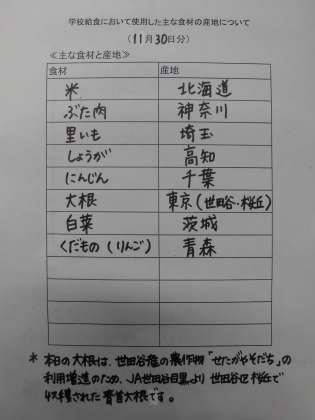 学校給食において使用した主な食材の産地について
(11月30日分)
≪主な食材と産地≫
食材 産地
米 北海道
ぶた肉 神奈川
里いも 埼玉
しょうが 高知
にんじん 千葉
大根 東京(世田谷・桜丘)
白菜 茨城
くだもの(りんご) 青森
* 本日の大根は、世田谷産の農作物「せたがやそだち」の
利用増進のため、JA世田谷目黒より世田谷区桜丘で
収穫された青首大根です。